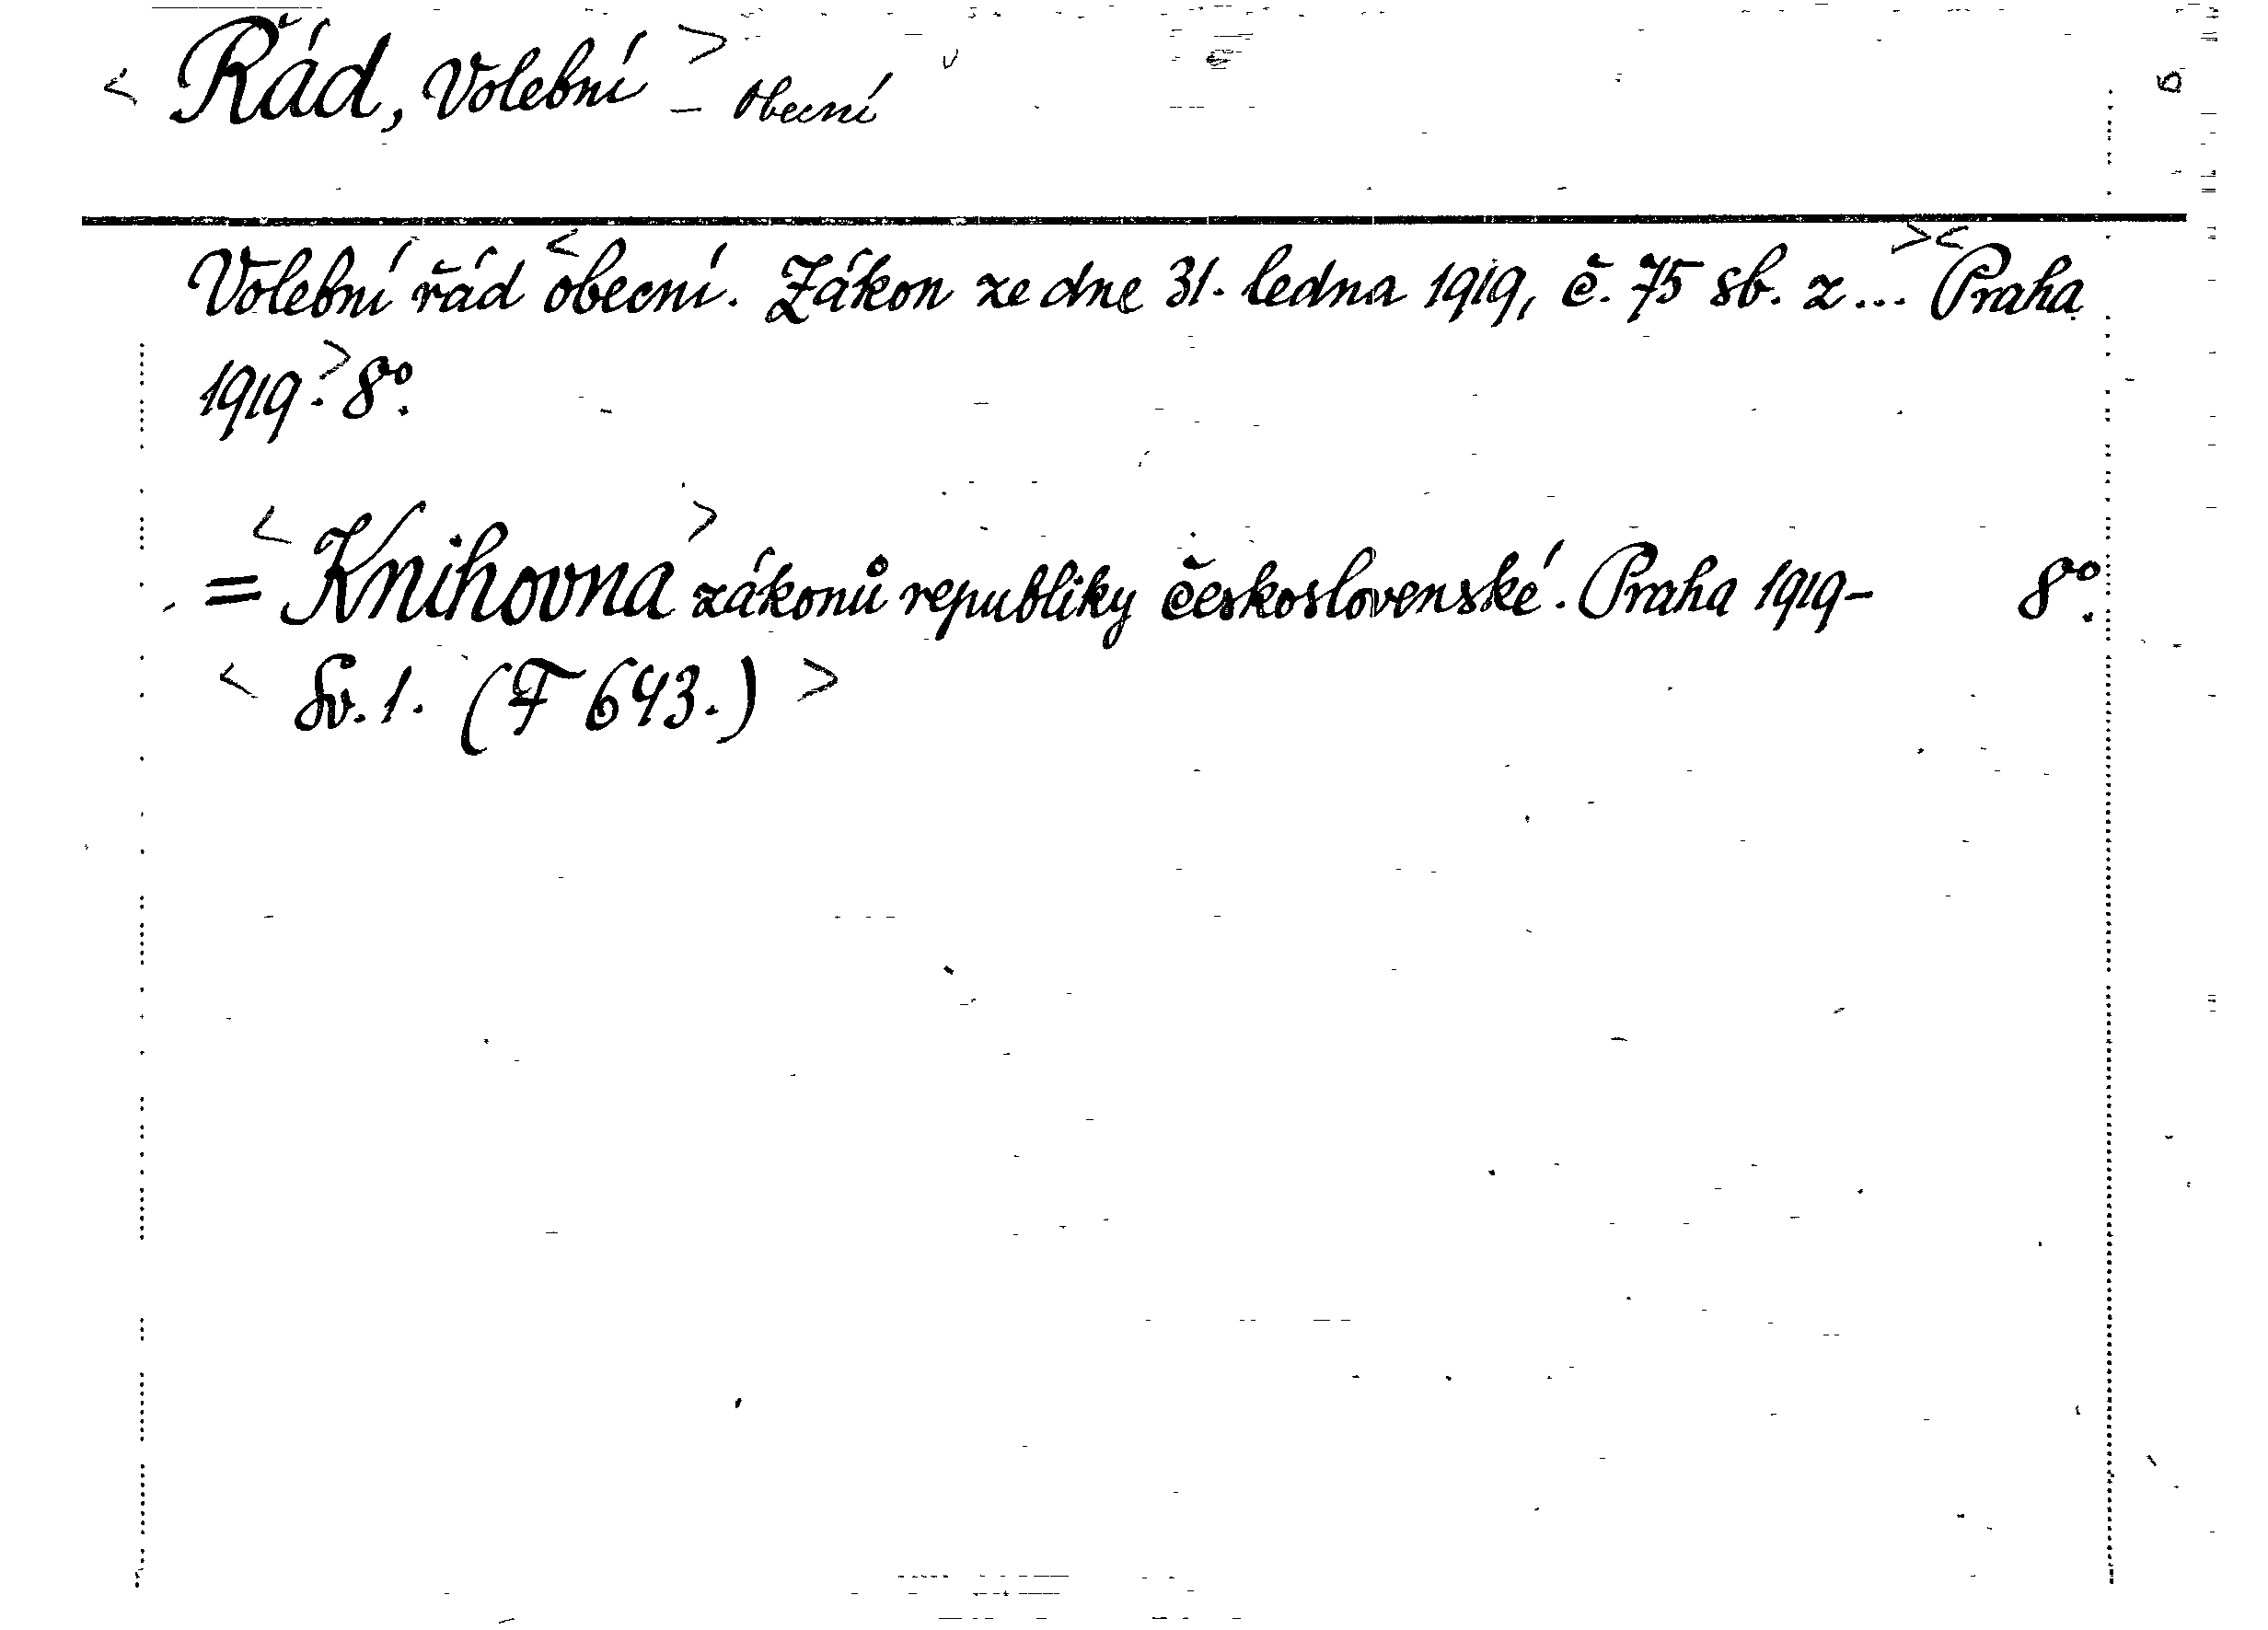 < Řád, Volební > – obecní
Volební řád < obecní. Zákon ze dne 31. ledna 1919, č. 75 sb. z... >< Praha
1919. > 8°.
= < Knihovna > zákonů republiky československé. Praha 1919- 8°.
< Sv. 1. (F 643.) >